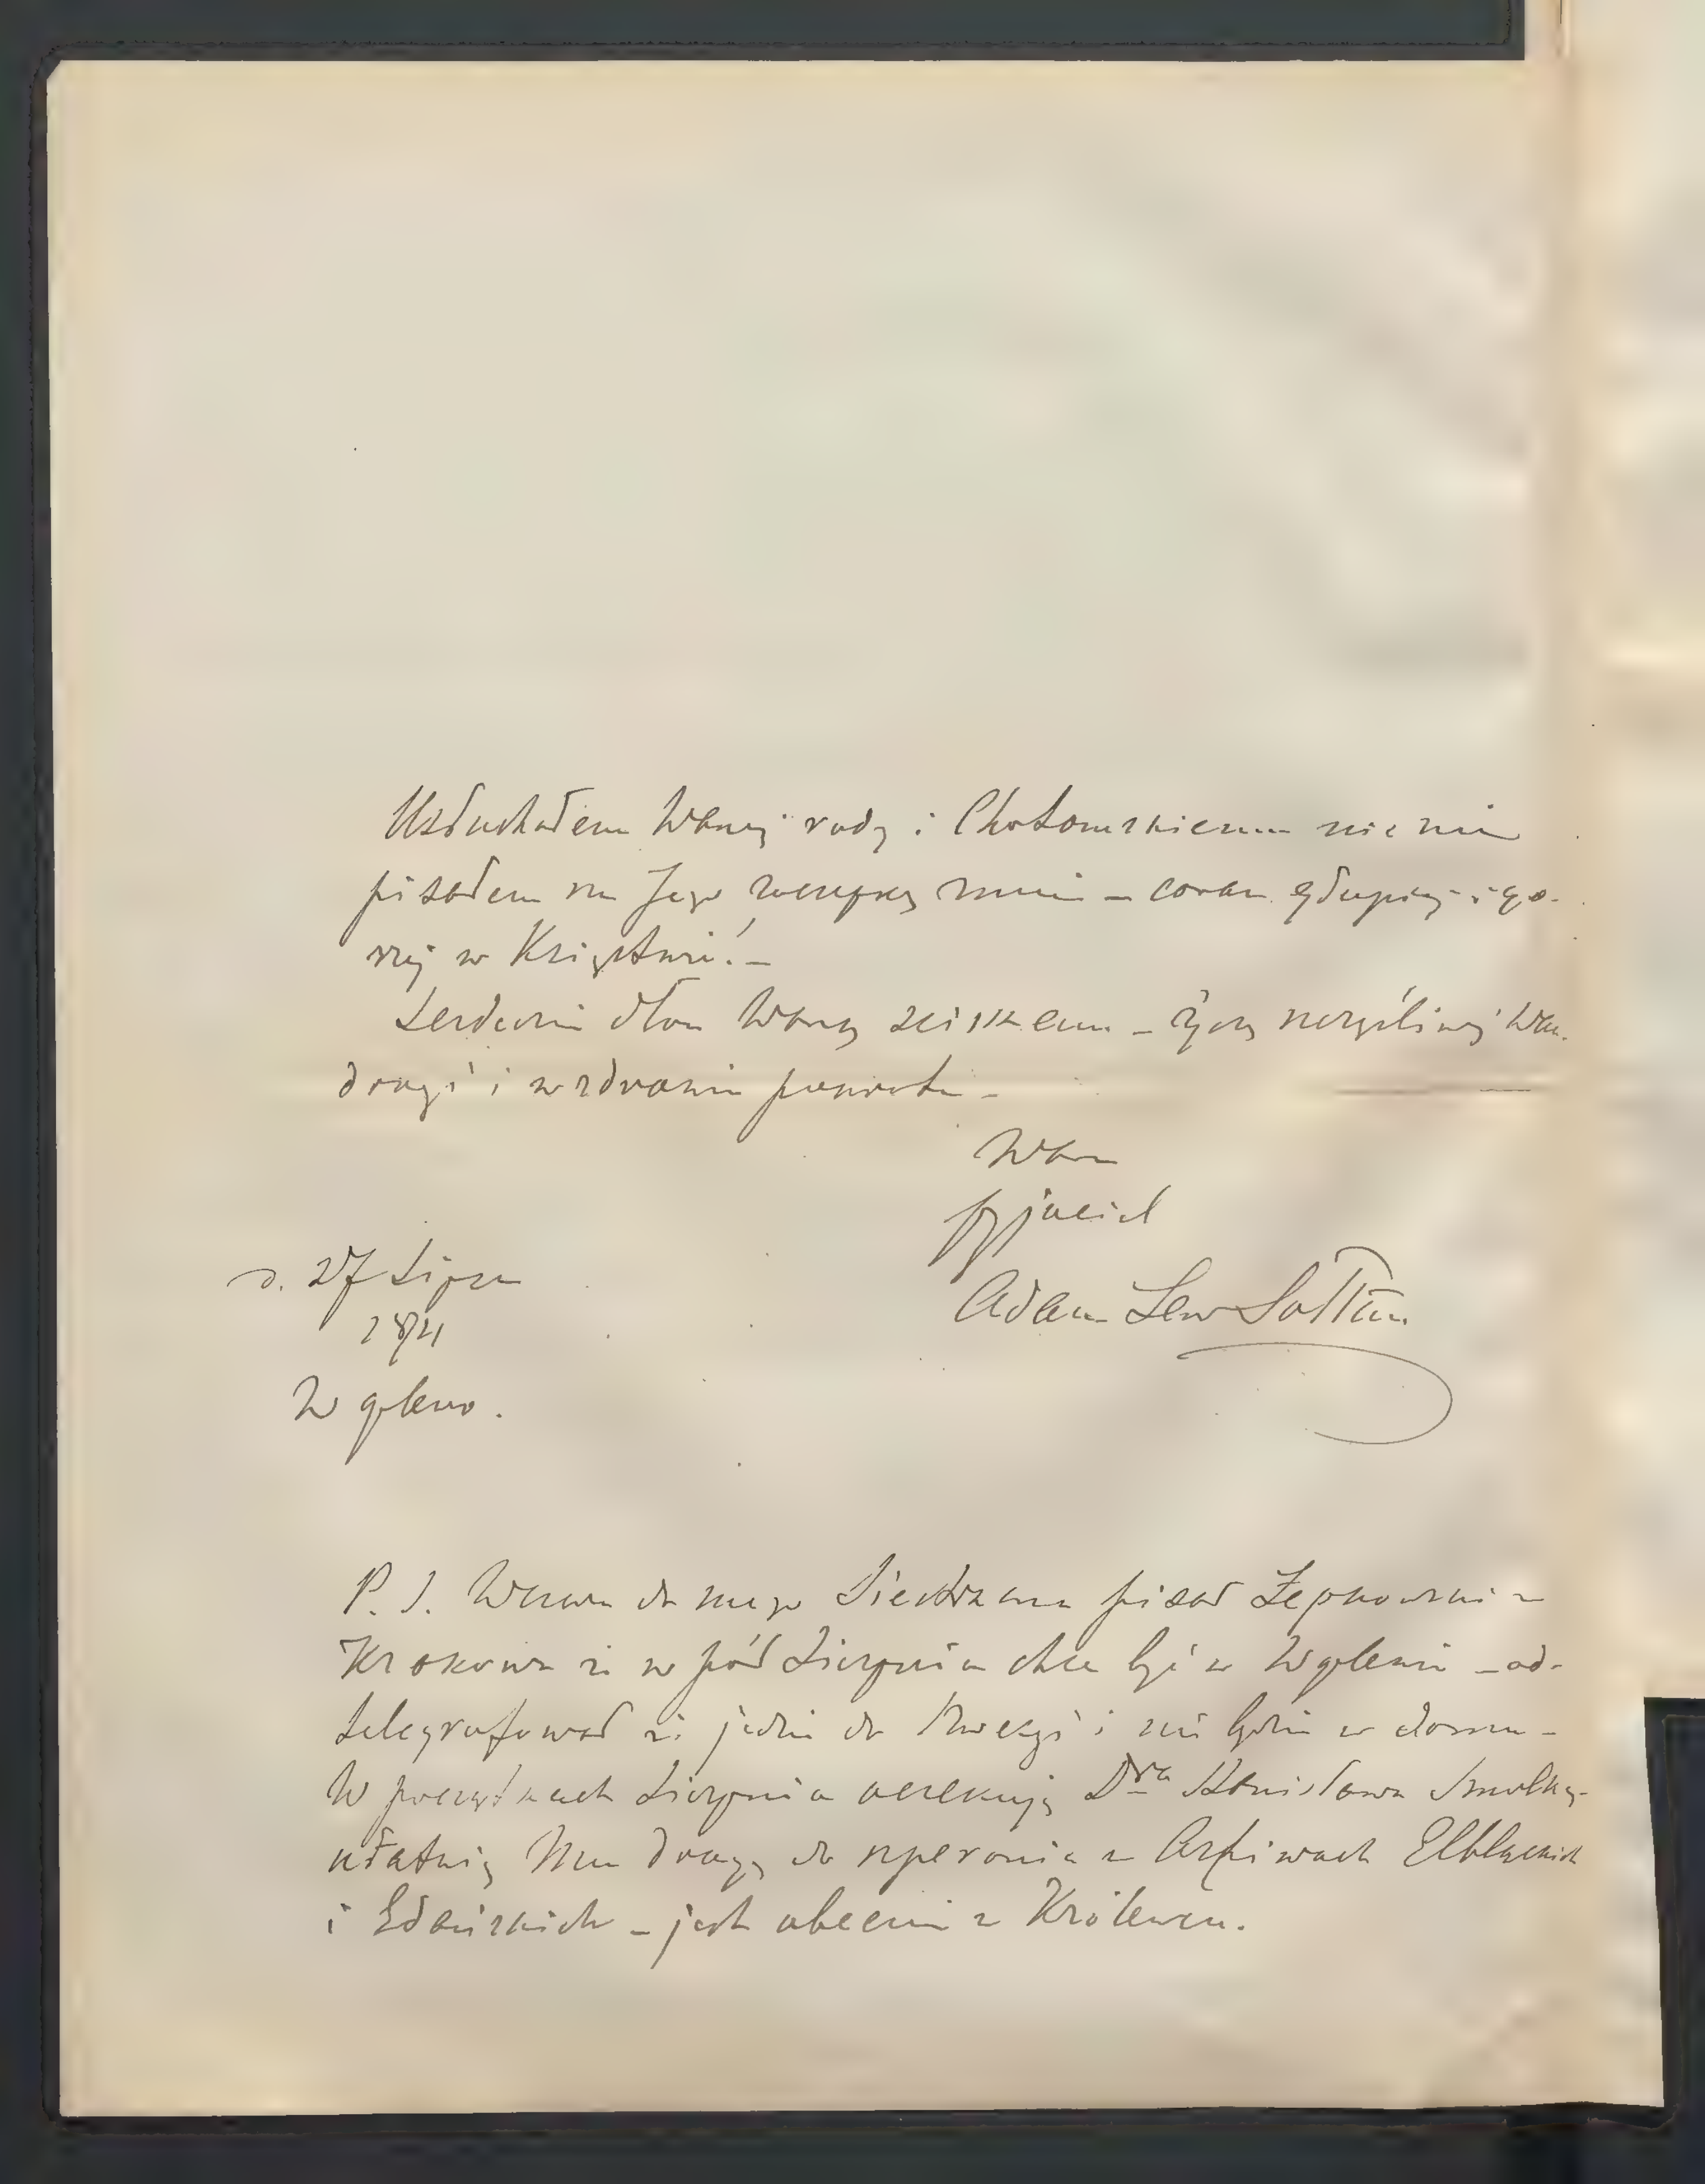 Usłuchałem Waszej rady i Chotomskiemu nic nie
pisałem na Jego zaczepkę mnie – coraz głupiej i go-
rzej w Księstwie! –
Serdecznie dłoń Waszą ściskam – życzę szczęśliwej Wam
drogi i w zdrowiu powrotu –
Wasz
przyjaciel
Adam Lew Sołtan
d. 27 Lipca
1871
W głewo.
P. S. Wczoraj do mego Siestrzana pisał Łepkowski z
Krakowa że w pół Sierpnia chce być w – od-
telegrafował że jedzie do Szwecyi i nie będzie w domu –
W początkach Sierpnia oczekuję Dra Stanisława Smolkę –
ułatwię Mu drogę do szperania w Arhiwach Elbląskich
i Gdańskich – jest obecnie w Królewcu.